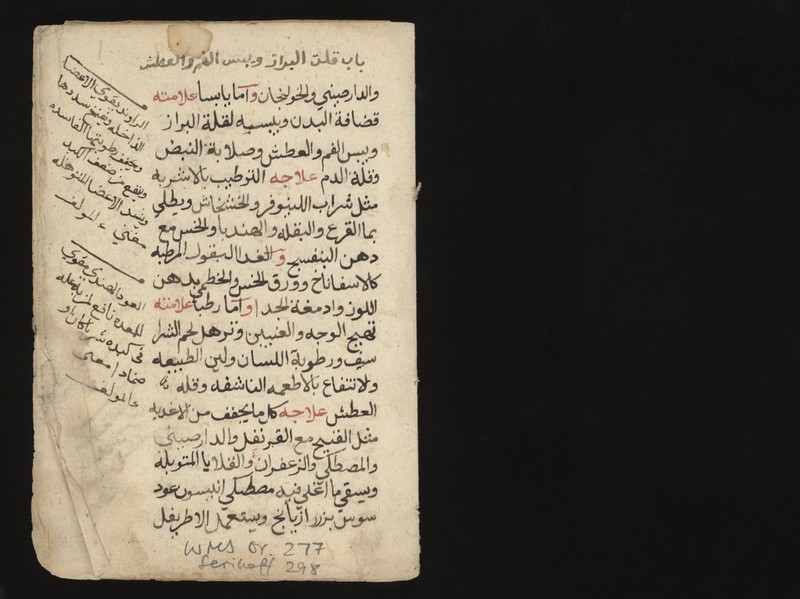 باب قلة البراز ويبس الفم والعطش
والدارصيني والخولنجان وأما يابسا علامته
قضافة البدن ويبسه لقلة البراز
ويبس الفم والعطش وصلابة النبض
وقلة الدم علاجه الترطيب بالاشربه
مثل شراب اللينوفر والخشخاش ويطلي
بماالقرع والبقله والهندبا والخس مع
دهن البنفسج والغدا البقول المرطبه
كالاسفاناخ وورق الخس والخطمي بدهن
اللوز وادمغة الجدا وأما رطبا علامته
تهبج الوجه والعينين وترهل لحم الشرا
سيف ورطوبة اللسان ولين الطبيعه
ولانتفاع بالاطعمه الناشفه وقلة
العطش علاجه كل ما يجفف من الاغديه
مثل القنبج مع القرنفل والدارصيني
والمصطكي والزعفران والقلايا المتوبله
ويسقي ما اغلي فيه مصطكي انيسون عود
سوس بزر رازيانج ويستعمل الاطريفل
الراوند يقوي الاعضا
الداخله ويفتح سددها
ويجفف رطوبتها الفاسده
وينفع من ضعف الكبد
ويشد الاعضا المترهله
مغني للمولف
العود الهندي مقوي
للمعده نافع لمن به عله
في كبده شربا كان او
ضمادا مغني
للمولف
WMS Or. 277
Serikoff 298